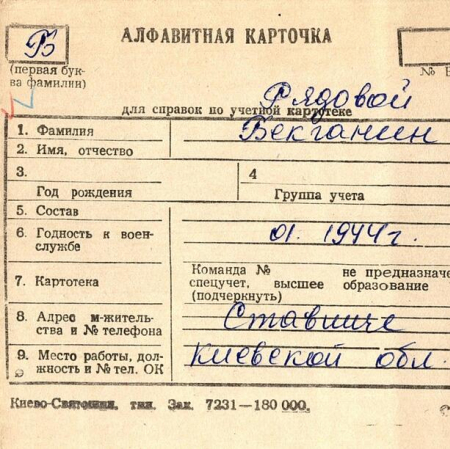 Б
АЛФАВИТНАЯ КАРТОЧКА
(первая бук-
ва фамилии)
№
Рядовой
для справок по учетной картотеке
1. Фамилия
Бекганин
2. Имя, отчество
3.
Год рождения
4
Группа учета
5. Состав
6. Годность к воен-
службе
01. 1944 г.
7. Картотека
Команда № не предназначе
спецучет, высшее образование
(подчеркнуть)
8. Адрес м-житель-
ства и № телефона
Ставище
9. Место работы, дол-
жность и № тел. ОК
Киевской обл.
Киево-Святошин. тип. Зак. 7231—180 000.